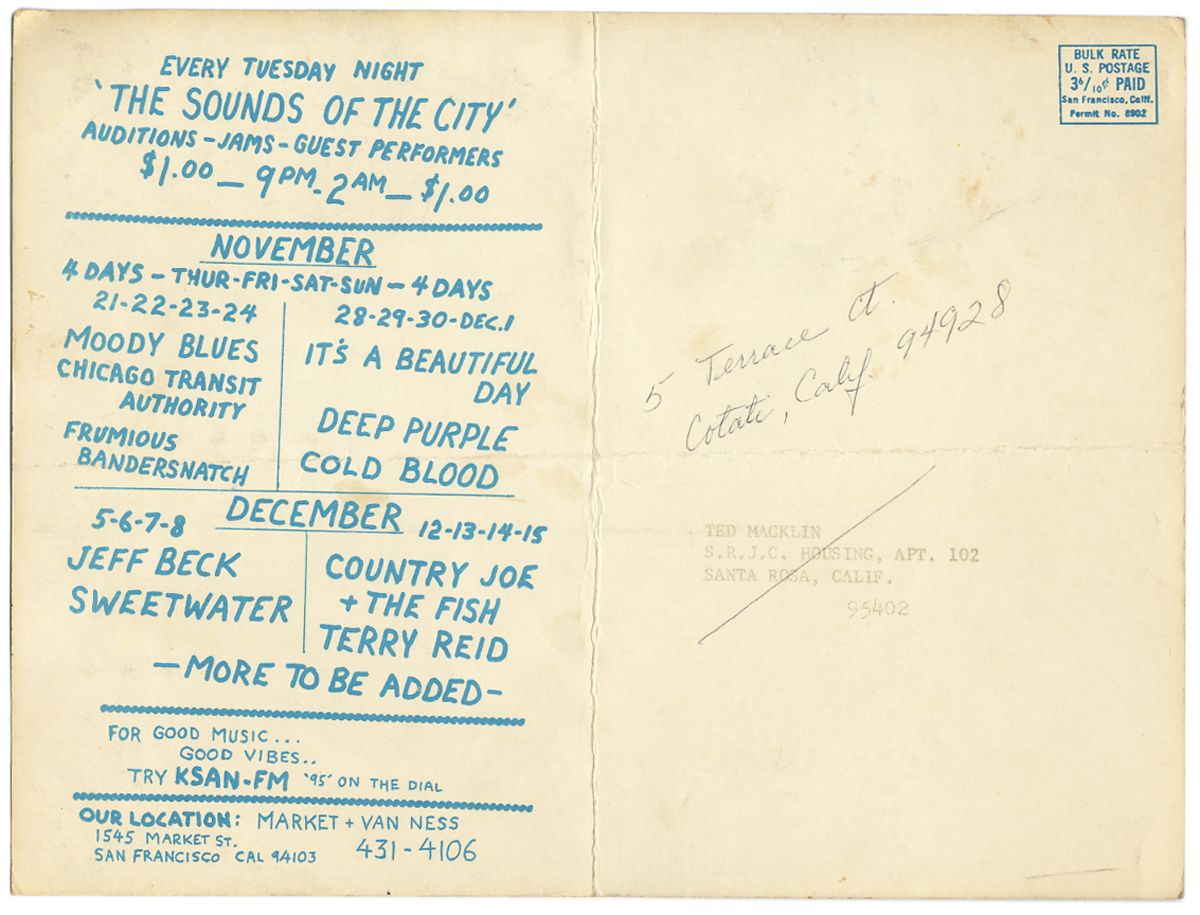 EVERY TUESDAY NIGHT
'THE SOUNDS OF THE CITY'
AUDITIONS - JAMS - GUEST PERFORMERS
$1.00 - 9PM - 2AM - $1.00
NOVEMBER
4 DAYS - THUR-FRI-SAT-SUN - 4 DAYS
21-22-23-24
MOODY BLUES
CHICAGO TRANSIT
AUTHORITY
FRUMIOUS
BANDERSNATCH
28-29-30-DEC.1
IT'S A BEAUTIFUL
DAY
DEEP PURPLE
COLD BLOOD
DECEMBER
5-6-7-8
JEFF BECK
SWEETWATER
12-13-14-15
COUNTRY JOE
+ THE FISH
TERRY REID
-MORE TO BE ADDED-
FOR GOOD MUSIC...
GOOD VIBES..
TRY KSAN-FM '95' ON THE DIAL
OUR LOCATION: MARKET + VAN NESS
1545 MARKET ST.
SAN FRANCISCO CAL 94103
431-4106
BULK RATE
U. S. POSTAGE
3 6/10 PAID
San Francisco, Calif.
Permit No. 8902
5 Terrace Ct.
Cotati, Calif. 94928
TED MACKLIN
S.R.J.C. HOUSING, APT. 102
SANTA ROSA, CALIF.
95402